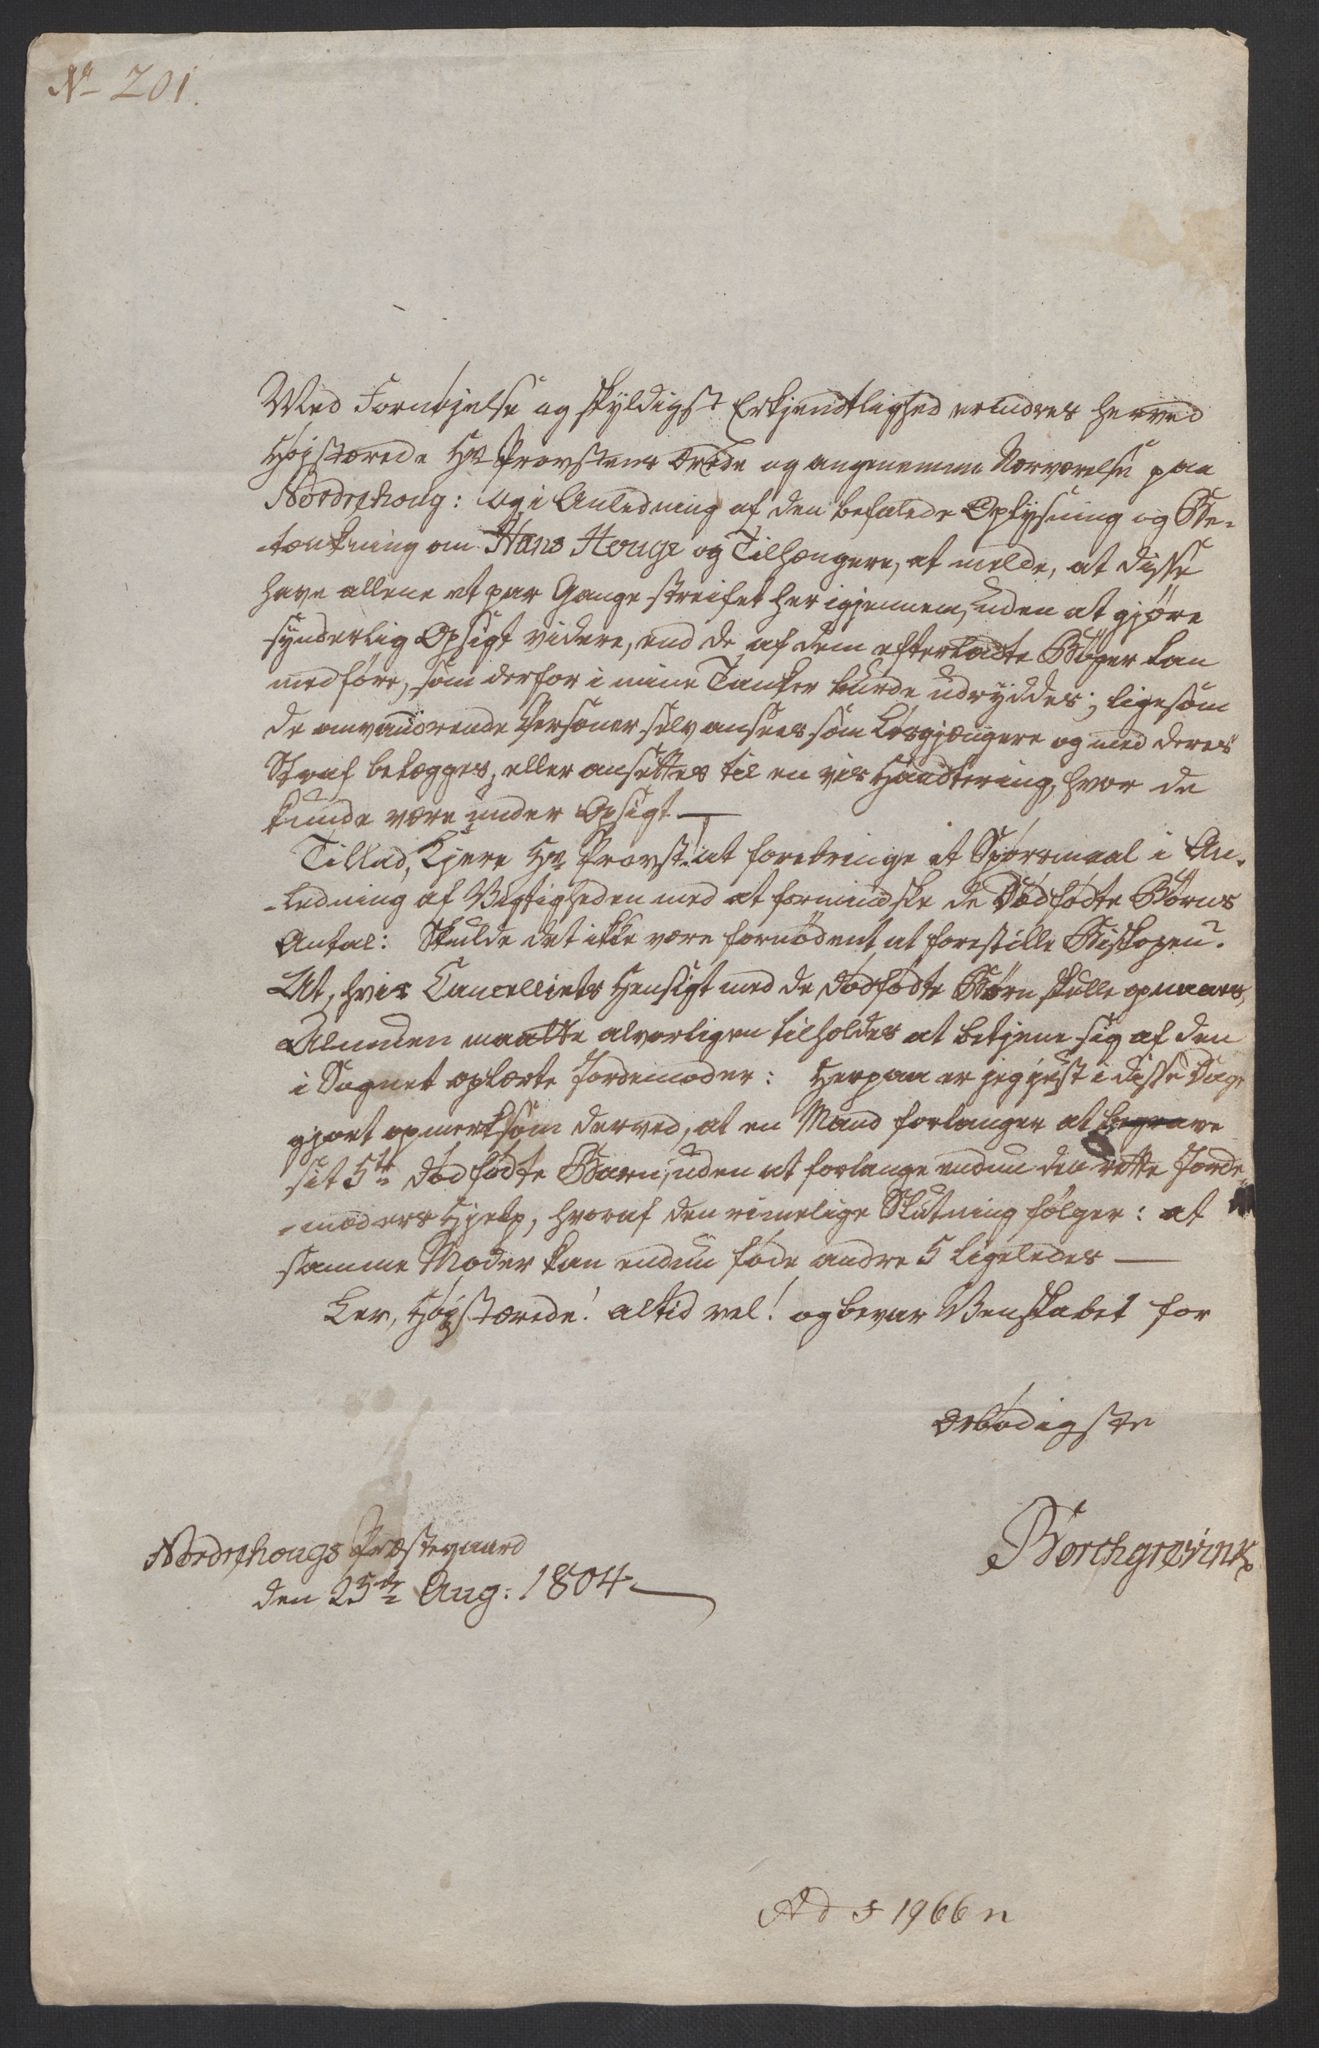 No 201.
Med Fornöjelse og skyldigst Erkjendtlighed erindres herved
Højstærede Hr Provstens ærede og angenemme Nærværelse paa
Nordrehoug: og i Anledning af den befalede Oplysning og Be-
-tænkning om Hans Houge og Tilhængere, at melde, at disse
have allene et par Gange streifet her igjennem, uden at gjøre
synderlig Opsigt videre, end de af dem efterladte Bøger kan
medføre, som derfor i mine Tanker burde udryddes; ligesom
de omvandrende Personer selv ansees som Løsgjængere og med deres
Straf belægges, eller ansættes til en vis Handtering, hvor de
kunde være under Opsigt —
Tillad, Kjere Hr Provst! at forebringe et Spørsmaal i An-
-ledning af Vigtigheden med at formindske de Dødfødte Børns
Antal: Skulde det ikke være fornødent at forestille Biskopen?
At, hvis Cancelliets Hensigt med de dødfødte Børn skulle opnaaes,
Almuen maatte alvorligen tilholdes at betjene sig af den
i Sognet oplærte Jordemoder: Herpaa er jeg just i disse Dage
gjort opmerksom derved, at en Mand forlanger at begrave
sit 5te dødfødte Barn, uden at forlange endnu den rette Jorde-
-moders Hjelp, hvoraf den rimelige Slutning følger: at
samme Moder kan endnu føde andre 5 ligeledes —
Lev, Højstærede! altid vel! og bevar Venskabet for
ærbødigste
Borchgrevink
Nordrehougs Præstegaard
den 25de Aug: 1804
Ad § 1966 n